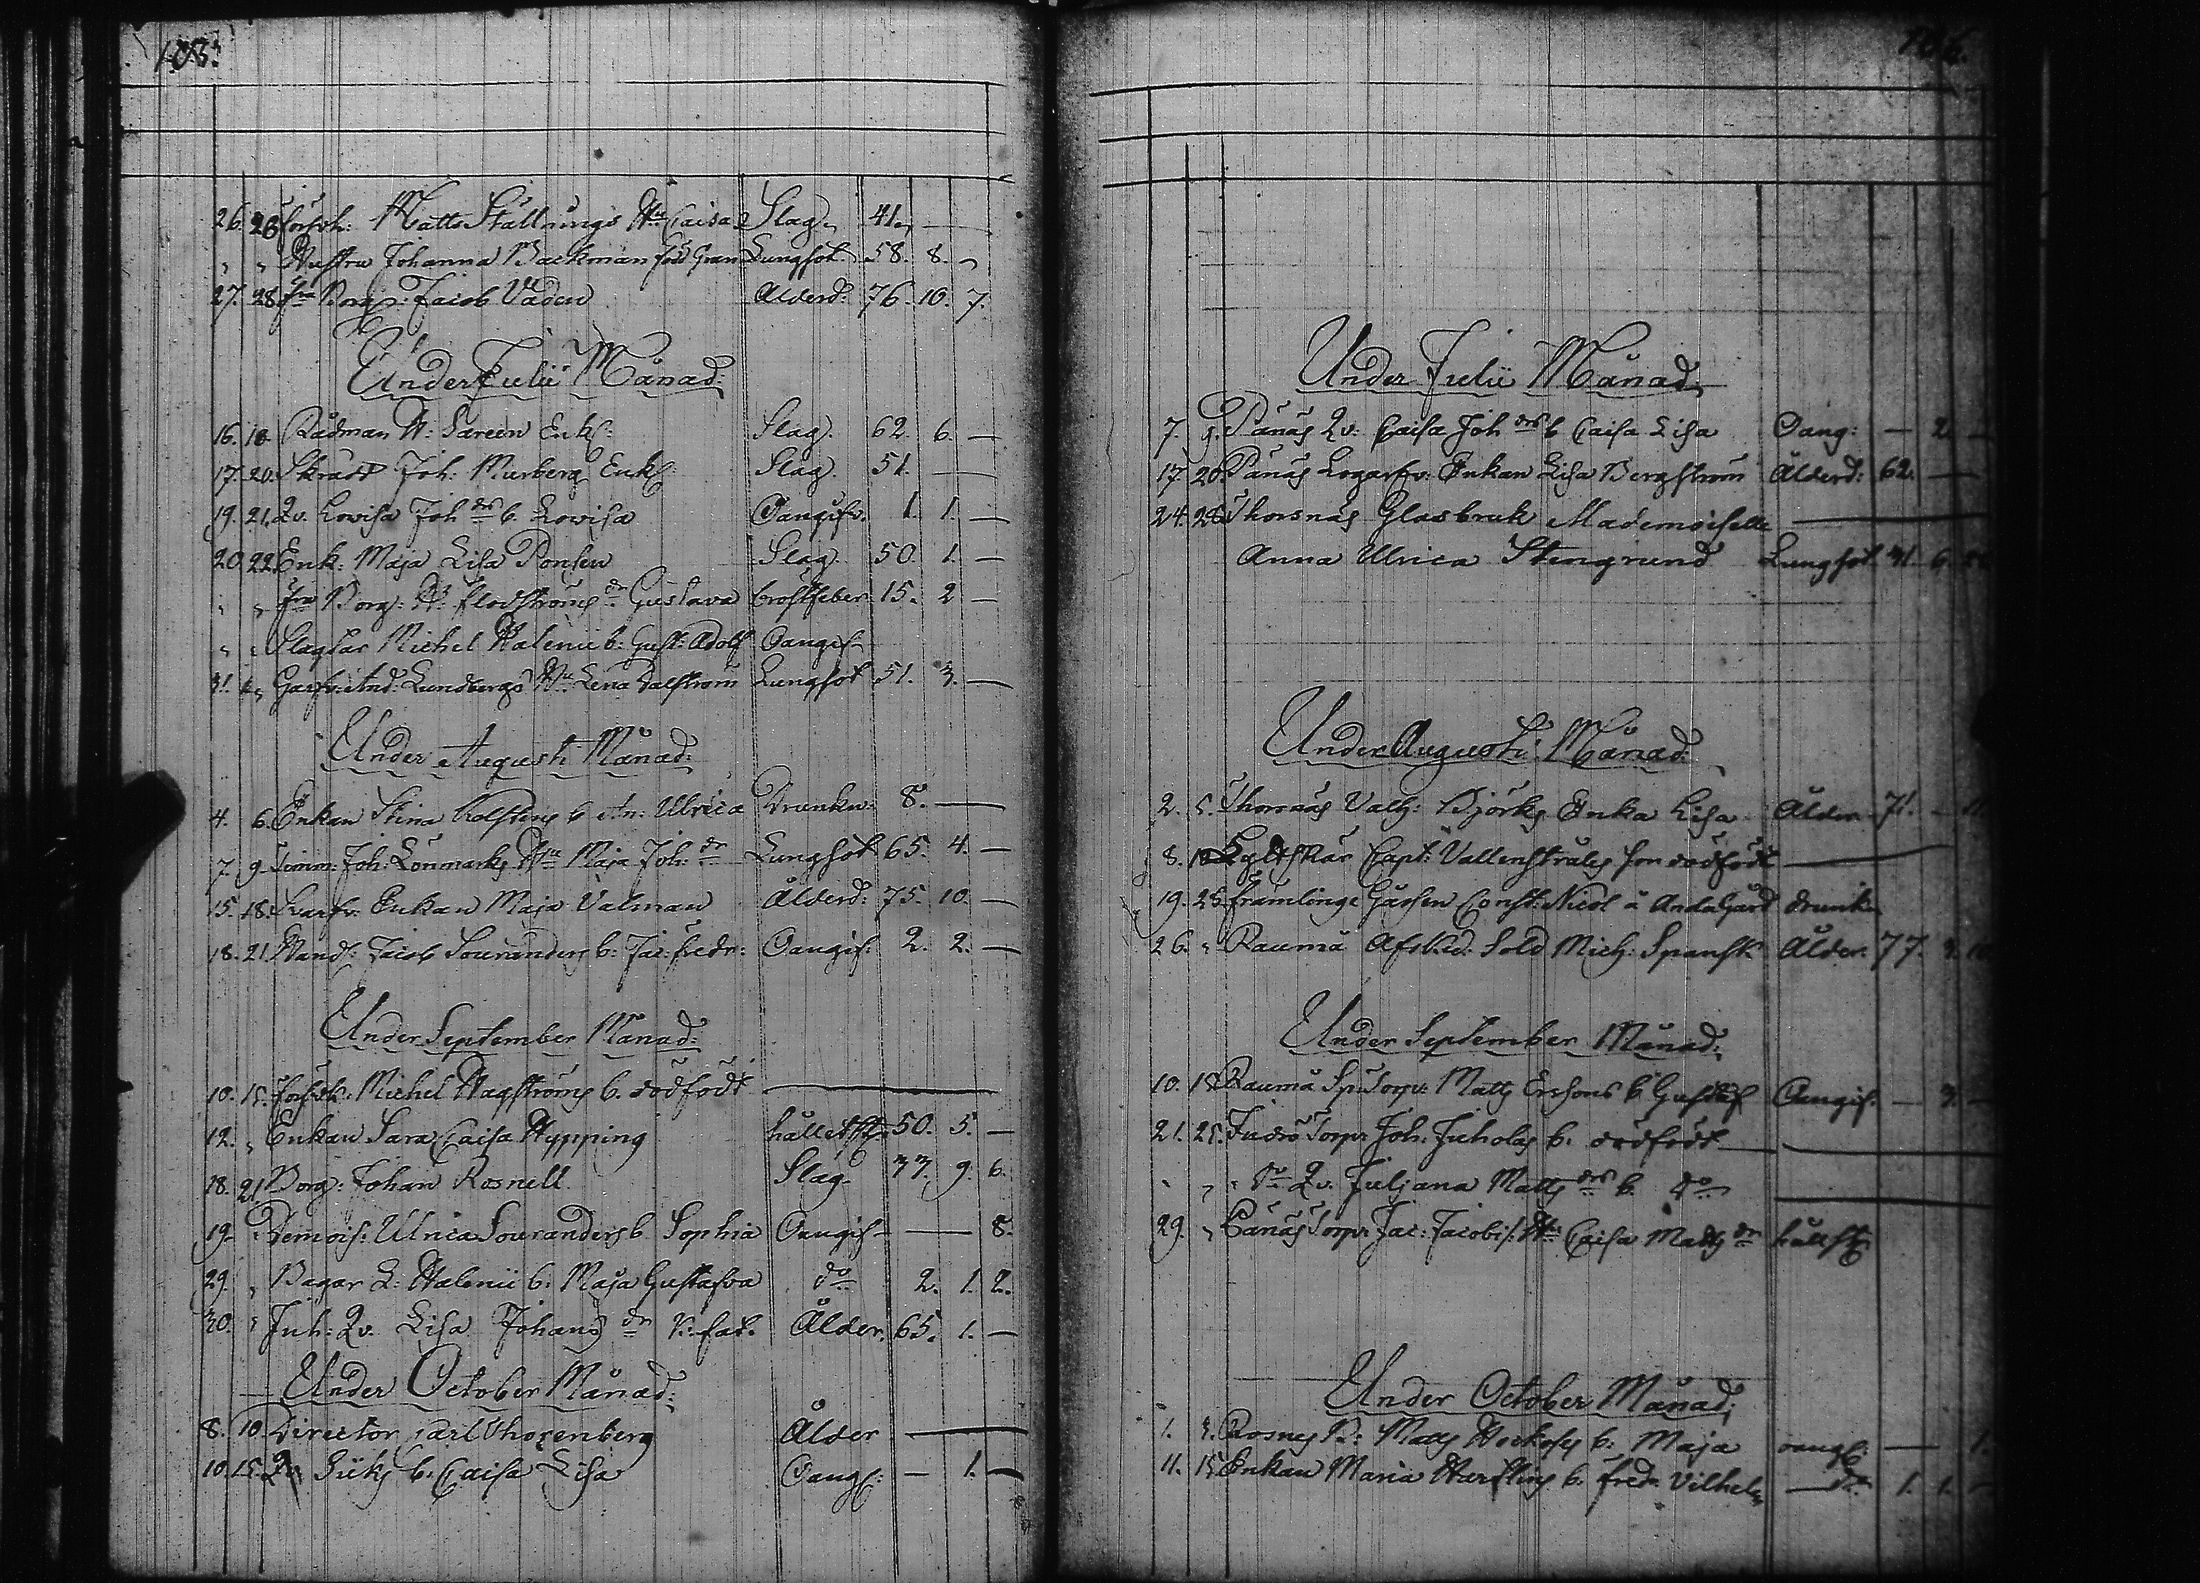 105.
26. 28 Försvk: Matts Ställnings Hu Caisa Slag. 41. —
" " Hustru Johanna Backman född Gran Lungsot. 58. 8. "
27. 28. fr Borg: Jacob Vaden Ålderd: 76. 10. 7.
Under Julii Månad:
16. 18. Rådman H: Sareen Enk: Slag. 62. 6. —
17. 20. Skrädd Joh: Murberg Enk: Slag. 51. —
19. 21. Qv. Lovisa Joh drs b. Lovisa Oangifv. 1. 1. —
20. 22. Enk: Maja Lisa Ponsen Slag. 50. 1. —
" " fr Borg: H: Flodströms dr Gustava bröstfeber 15. 2 —
" " Slagtar Michel Walenii b: Gust: Adolf Oangif.
31. " Garfv: And: Lundbergs Hu Lena Dalström Lungsot 51. 3. —
Under Augusti Månad:
4. 6. Enkan Stina Holstens b. An: Ulrica Drunkn: 8. —
7. 9. Timm: Joh: Lönmarks Hu Maja Joh: dr Lungsot 65. 4. —
15. 18. Svarfv: Enkan Maja Valman Ålderd: 75. 10. —
18. 21. Hand: Jacob Souranders b: Jac: Fredr: Oangif: 2. 2. —
Under September Månad:
10. 15. Försvk: Michel Hagströms b. dödfödt —
12. " Enkan Sara Caisa Hypping håll et st: 50. 5. —
18. 21 Borg: Johan Rosnell Slag. 37. 9. 6.
19. " Demois: Ulrica Souranders b. Sophia Oangif. — 8.
29. " Bagar L: Walenii b: Maja Gustafva do 2. 1. 2.
30. " Inh: Qv. Lisa Johans dr V: fat. Ålder. 65. 1. —
Under October Månad:
8. 10. Director Carl Thorenberg Ålder —
10. 15. Qv Siiks b: Caisa Lisa Oang: — 1. —
106.
Under Julii Månad:
7. 9. Pänäs Qv: Caisa Joh drs b Caisa Lisa Oang: — 2 —
17. 20. Panäs Logarfv: Enkan Lisa Bergström Ålderd: 62. —
24. 28. Thorsnäs Glasbruk Mademoiselle —
Anna Ulrica Stengrund Lungsot 31 6
Under Augusti Månad:
2. 5. Thornäs Valtz: Björks Enka Lisa Ålder 71. —
8. 10 Sgldskär Capt: Vallenstråles son dödfödt —
19. 25. främlinge Gåssen Const: Nicol å Anda Gård drunk.
26. " Raumå Afsked: Sold Mich: Spansk Ålder: 77. 3. 10
Under September Månad:
10. 18 Raumå Sp: Torp: Matts Ersons b Gustaf Oangif. — 3. —
21. 25. Indrö Torp: Joh: Juholas b: dödfödt —
" " " do Qv. Juljana Matts drs b. do —
29. " Canäs Torp: Jac: Jacobs: Hu Caisa Matts dr hållst:
Under October Månad;
1. 3. Rosnes R: Matts Heikols b: Maja oang: — 1.
11. 15. Enkan Maria Warstins b: Fredr: Vilhelm — do 1. 1. —